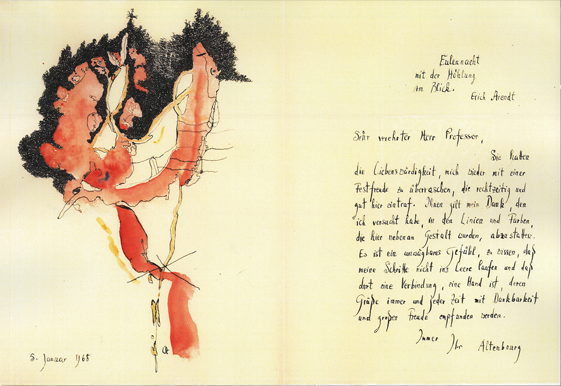 Eulennacht
mit der Höhlung
im Blick.
Erich Arendt
Sehr verehrter Herr Professor,
Sie hatten
die Liebenswürdigkeit, mich wieder mit einer
Festfreude zu überraschen, die rechtzeitig und
gut hier eintraf. Ihnen gilt mein Dank, den
ich versucht habe, in den Linien und Farben,
die hier nebenan Gestalt wurden, abzustatten.
Es ist ein unsagbares Gefühl, zu wissen, daß
meine Schritte nicht ins Leere laufen und daß
dort eine Verbindung, eine Hand ist, deren
Grüße immer und jeder Zeit mit Dankbarkeit
und großer Freude empfunden werden.
Immer
Ihr Altenbourg
5. Januar 1965